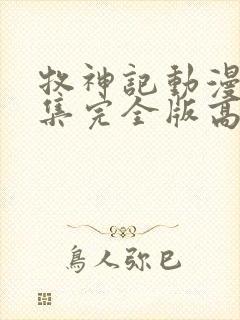 牧神記動漫
集完全版高
鳥人弥巳